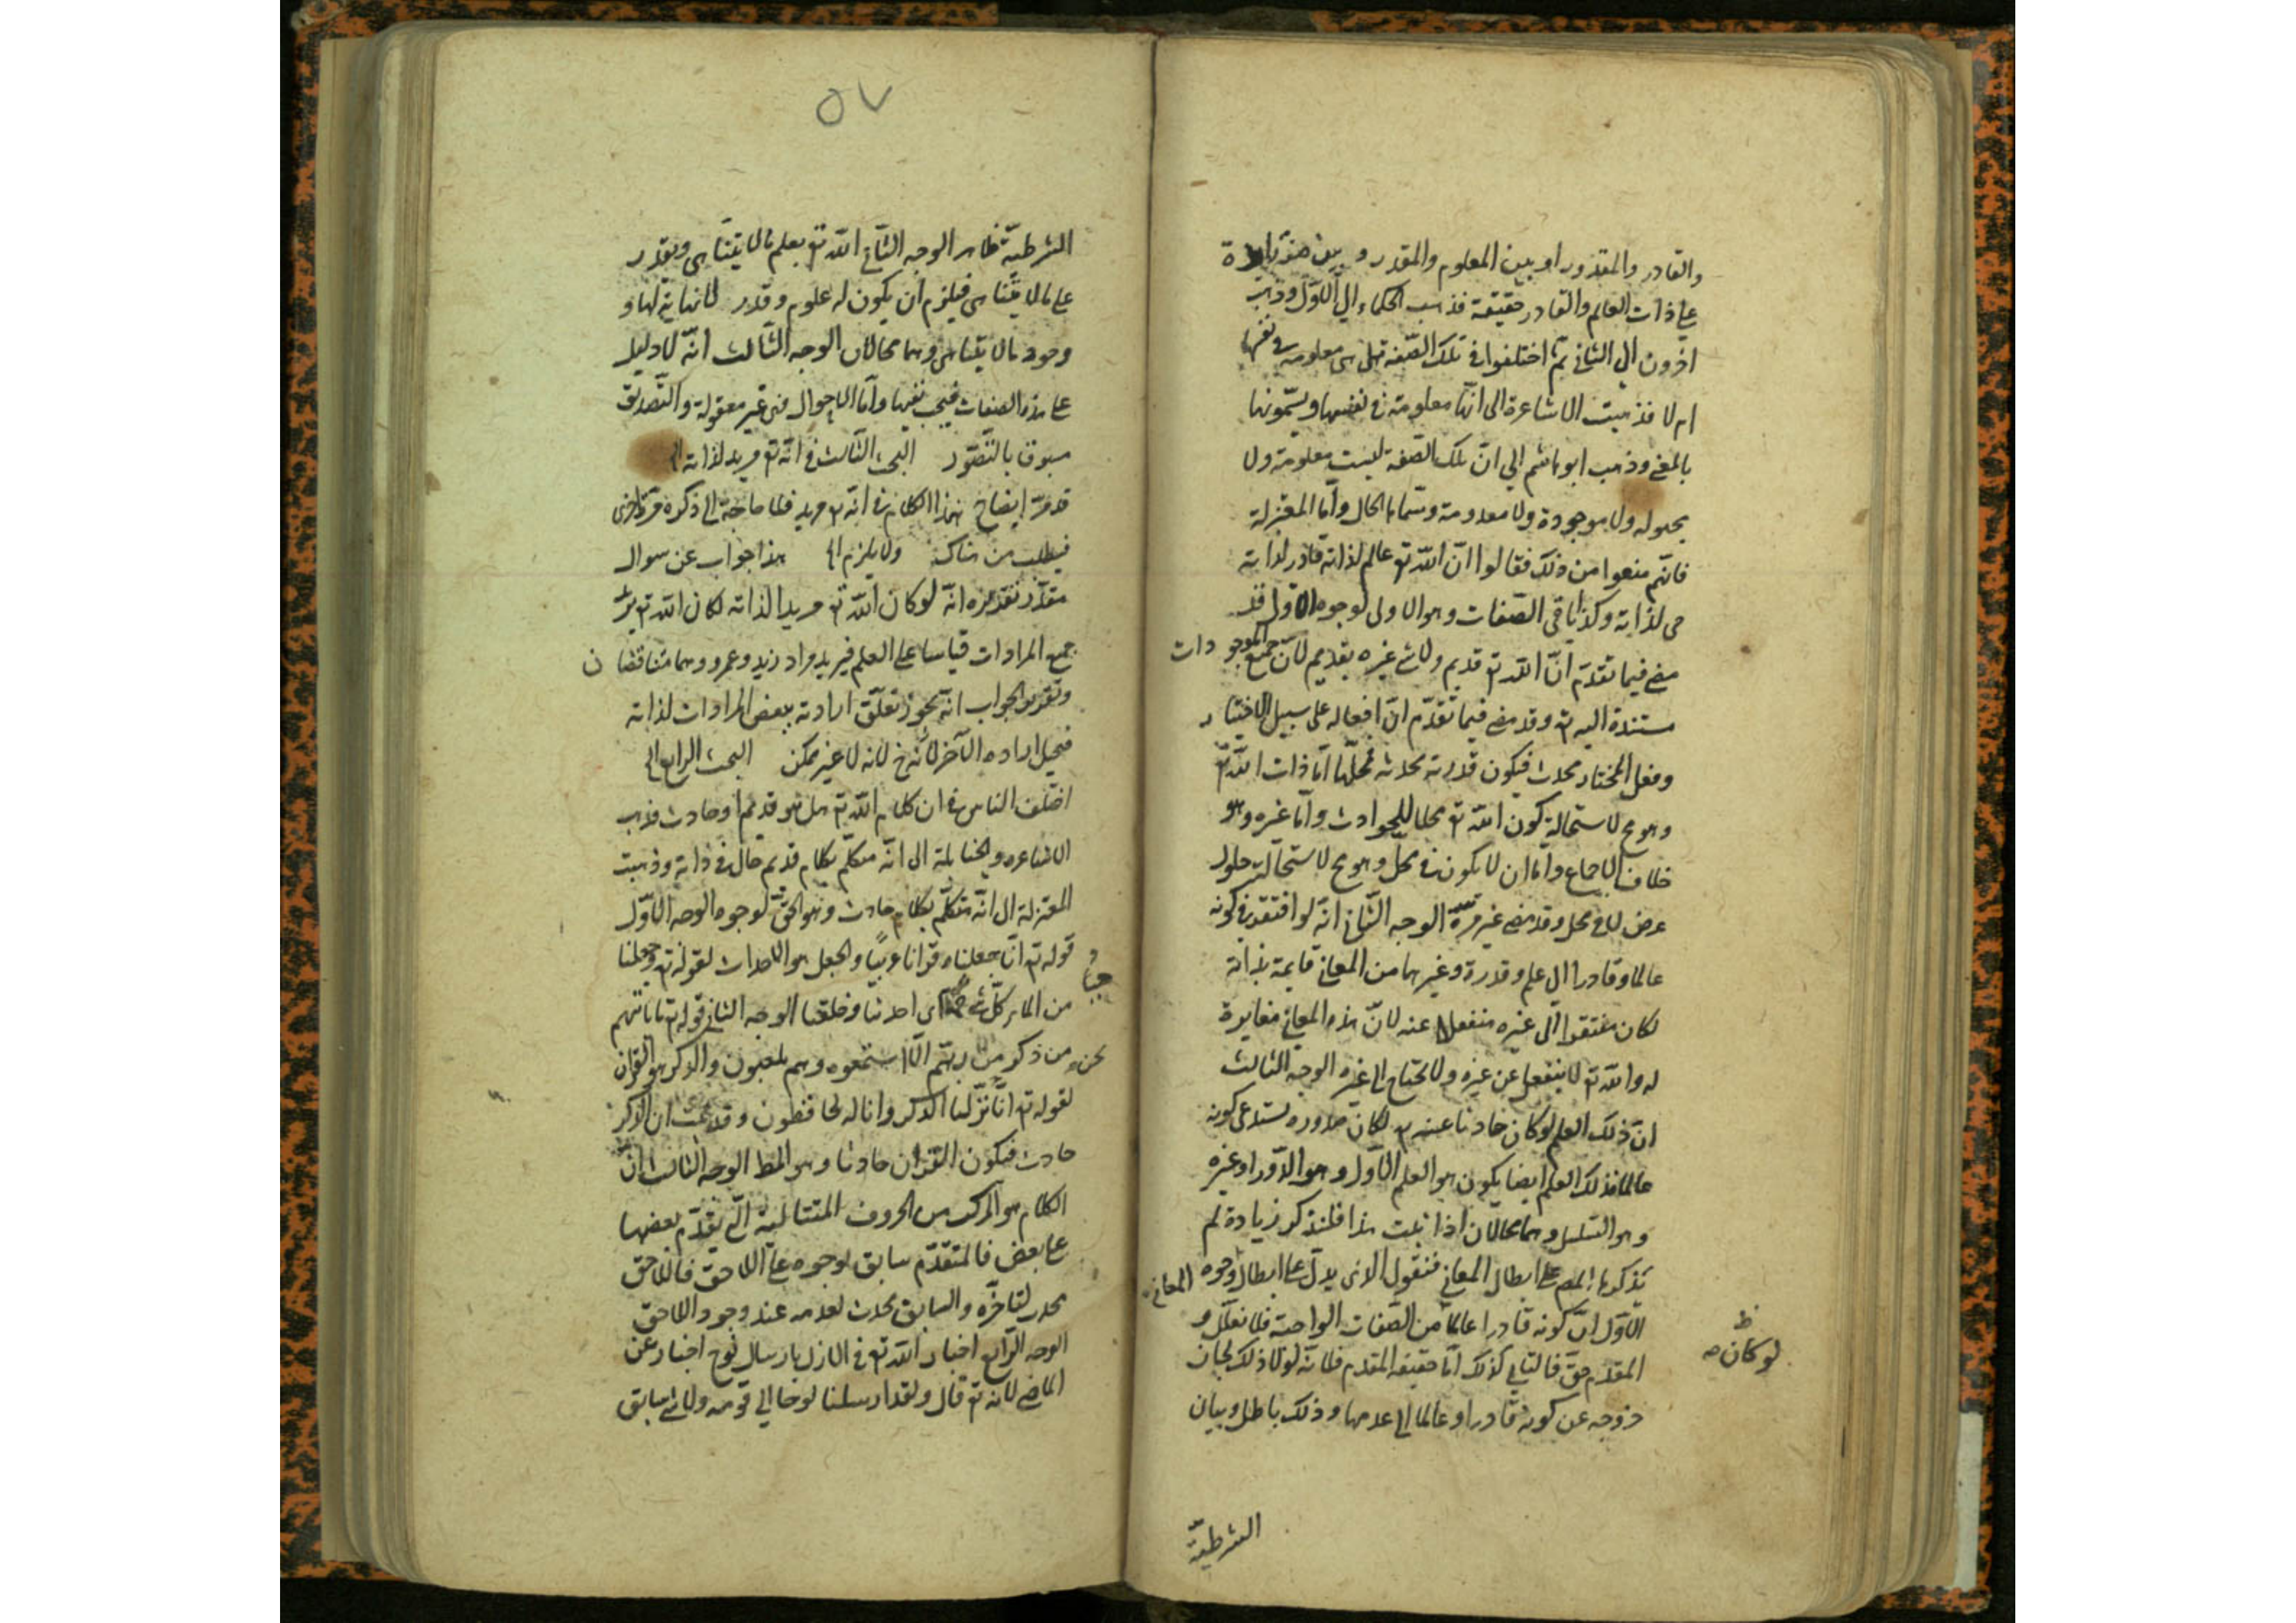 والقادر والمقدور او بين المعلوم والمقدر و بين صفة زايدة
على ذات العالم والقادر حقيقة فذهب الحكماء الى الاول وذهب
اخرون الى الثاني ثم اختلفوا في تلك الصفة هل هى معلومة في نفسها
ام لا فذهبت الاشاعرة الى انها معلومة في نفسها ويسمونها
بالمعنى وذهب ابو هاشم الى ان تلك الصفة ليست معلومة ولا
مجهولة ولا موجودة ولا معدومة وسماها الحال وأما المعتزلة
فانهم منعوا من ذلك فقالوا ان الله تع عالم لذاته قادر لذاته
حى لذاته وكذا باقي الصفات وهو الاولى لوجوه الاول قد
مضى فيما تقدم أن الله تع قديم ولا شى غيره بقديم لأن جميع الموجودات
مستندة اليه تع وقد مضى فيما تقدم ان افعاله على سبيل الاختيار
وفعل المختار محدث فيكون قدرته محدثة فمحلها اما ذات الله تع
وهو مح لاستحالة كون الله تع محلا للحوادث وأما غيره وهو
خلاف الاجماع واما ان لا يكون في محل وهو مح لاستحالة حلول
عرض لا في محل وقد مضى غير مرة الوجه الثاني انه لو افتقر في كونه
عالما وقادرا الى علم وقدرة وغيرهما من المعاني قايمة بذاته
لكان مفتقرا الى غيره منفعلا عنه لان هذه المعاني مغايرة
له والله تع لا ينفعل عن غيره ولا يحتاج الى غيره الوجه الثالث
ان ذلك العلم لو كان حادثا عنه تع لكان صدوره يستدعى كونه
عالما فذلك العلم ايضا يكون هو العلم الاول وهو الدور او غيره
وهو التسلسل وهما محالان اذا ثبت هذا فلنذكر زيادة لم
يذكرها المص على ابطال المعاني فنقول الذى يدل على ابطال وجوه المعاني
الاول ان كونه قادرا عالما من الصفات الواجبة فلا تعلل و
المقدم حق فالتالي كذلك أما حقيقة المقدم فلانه لولا ذلك لجاز
خروجه عن كونه قادرا وعالما الى عدمها وذلك باطل وبيان
لو كان ص
ظ
الشرطية
٥٧
الشرطية ظاهر الوجه الثاني الله تع يعلم مالا يتناهى ويقدر
على مالا يتناهى فيلزم ان يكون له علوم وقدر لا نهاية لها و
وجود مالا يتناهى وهما محالان الوجه الثالث انه لا دليل
على هذه الصفات فيجب نفيها وأما الاحوال فهى غير معقولة والتصديق
مسبوق بالتصور البحث الثالث في انه تع مريد لذاته الى
قد مر ايضاح هذا الكلام في انه تع مريد فلا حاجة الى ذكره مرة اخرى
فيطلب من هناك ولا يلزم الى هذا جواب عن سوال
مقدر تقديره انه لو كان الله تع مريدا لذاته لكان الله تع يريد
جميع المرادات قياسا على العلم فيريد مراد زيد وعمرو وهما متناقضان
وتقرير الجواب انه يجوز تعلق ارادته ببعض المرادات لذاته
فيحيل اراده الآخر لأنه ح لانه لا غير ممكن البحث الرابع الى
اختلف الناس في ان كلام الله تع هل هو قديم او حادث فذهب
الاشاعره والحنابلة الى انه متكلم بكلام قديم حال في ذاته وذهبت
المعتزلة الى انه متكلم بكلام حادث وهو الحق لوجوه الوجه الاول
قوله تع انا جعلناه قرانا عربيا والجعل هو الاحداث لقوله تع وجعلنا
من الماء كل شى حى اى احدثنا وخلقنا الوجه الثاني قوله تع ما ياتيهم
من ذكر من ربهم الا استمعوه وهم يلعبون والذكر هو القران
لقوله تع انا نزلنا الذكر وانا له لحافظون وقد ثبت ان الذكر
حادث فيكون القران حادثا وهو المط الوجه الثالث ان
الكلام هو المركب من الحروف المتتالية التي يتقدم بعضها
على بعض فالمتقدم سابق بوجوده على اللاحق فاللاحق
محدث لتاخره والسابق محدث لعدمه عند وجود اللاحق
الوجه الرابع اخبار الله تع في الازل بارسال نوح اخبار عن
الماضي لانه تع قال ولقد ارسلنا نوحا الى قومه ولا شى سابق